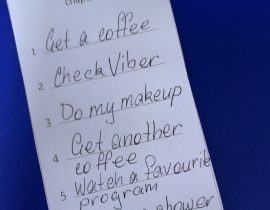 1 Get a coffee
2 Check Viber
3 Do my makeup
4 Get another
coffee
5 Watch a favourite
program
shower